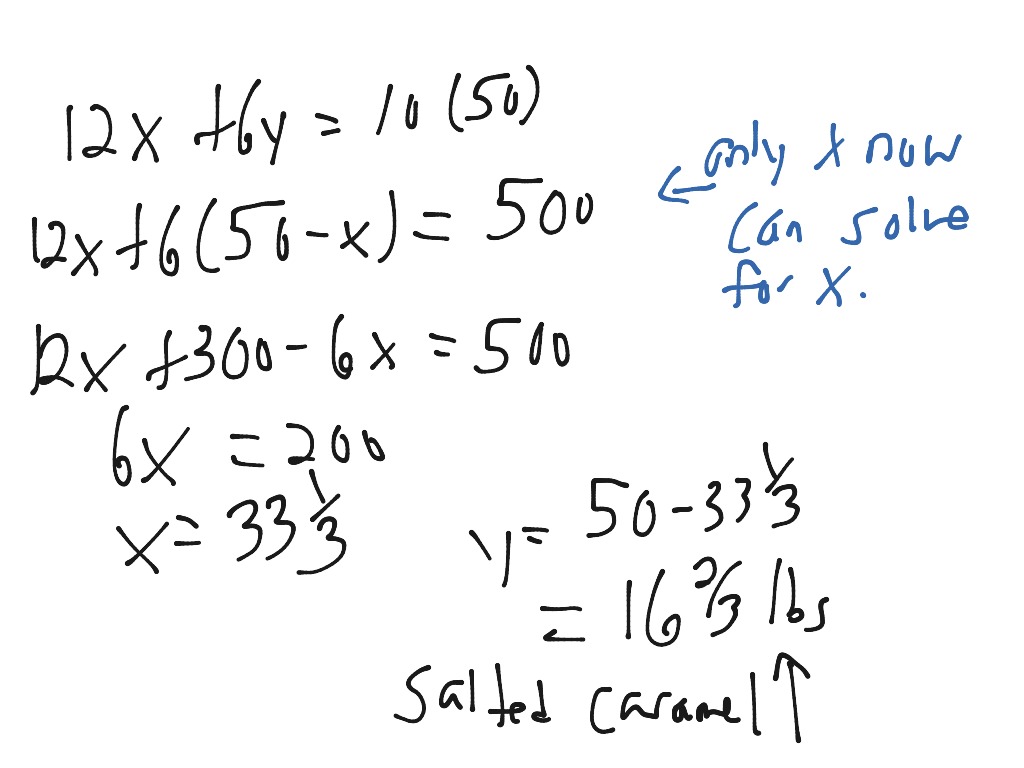 12x + 6y = 10 (50)
12x + 6(50 - x) = 500
12x + 300 - 6x = 500
6x = 200
x = 33 1/3
← only x now
can solve
for x.
y = 50 - 33 1/3
= 16 2/3 lbs
Salted caramel ↑